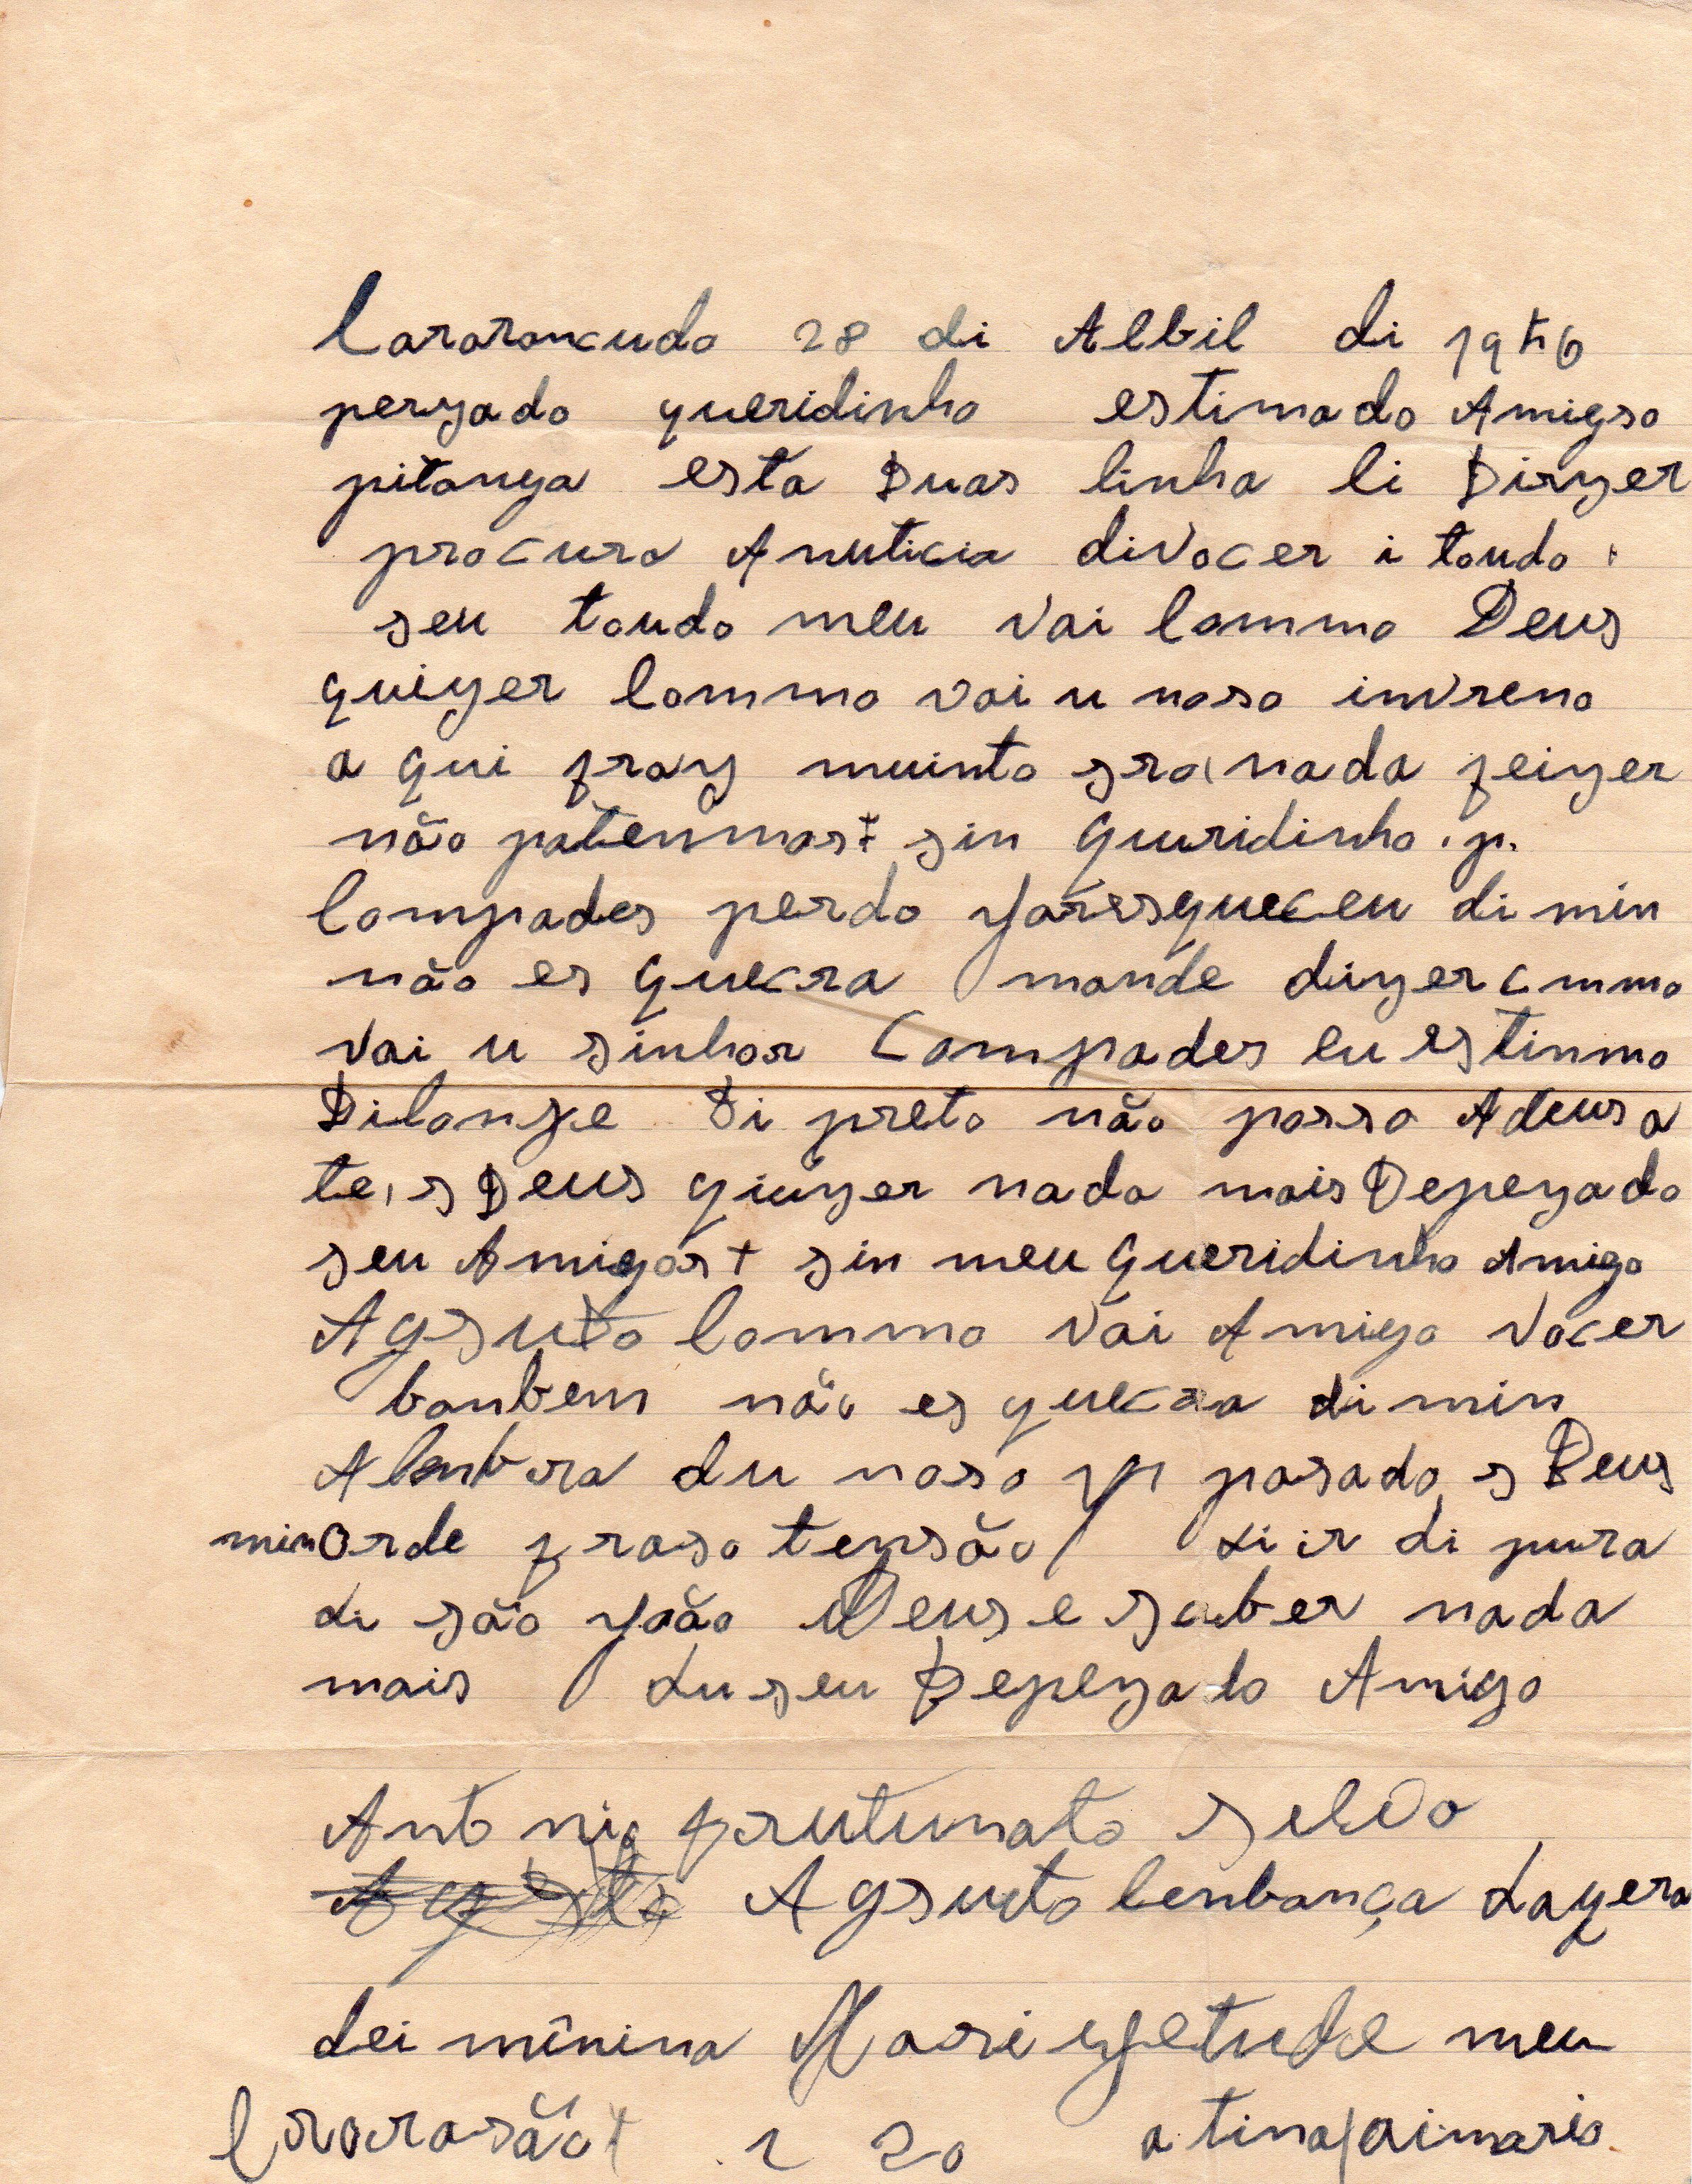 Cararancudo 28 di Albil di 1976
perzado queridinho estimado Amigso
pitanga esta Duas linha li Dirzer
procura A nuticia divocer i toudo
seu toudo meu vai Commo Deus
quizer Commo vai u noso invreno
a qui fraz muinto gra nada feizer
não patenmos + sin quuridinho . p.
Compades perdo ja esqueceu di min
não es quecra mande dizer cmmo
vai u sinhor Compades eu estinmo
Dilonge Di preto não posso Adeus a
te, s Deus quizer nada mais Depezado
seu Amigos + sin meu queridinho Amigo
Agsuto Commo vai Amigo vocer
banbem não es quecra di min
Alenbra du noso pasado, s Deus
minorde fraso tensão di ir di pura
di são joão Deus e saber nada
mais du seu Depezado Amigo
Antonio frutunato selvo
Agsuto lenbança
dei minina Mari getude meu
Crorasão + 2 20